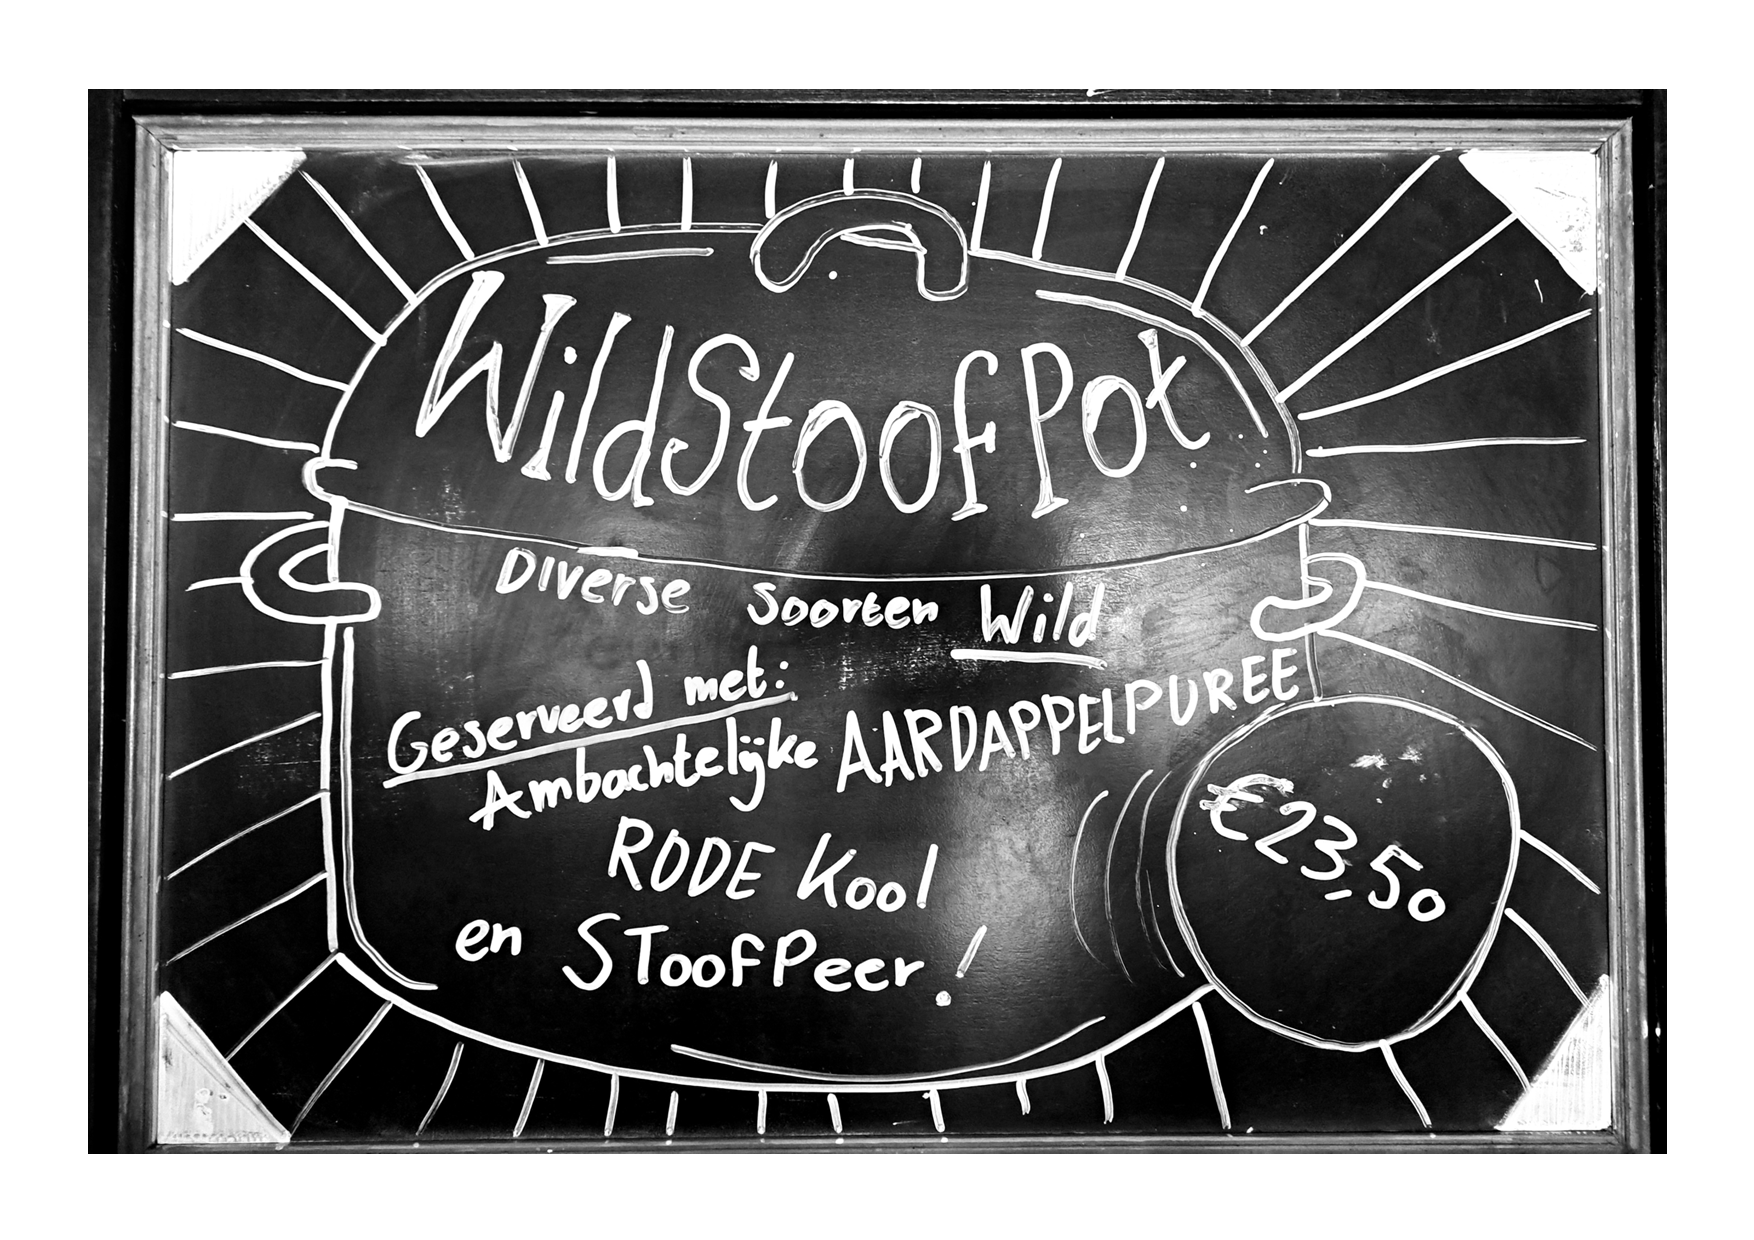 WildStoofPot
Diverse Soorten Wild
Geserveerd met:
Ambachtelijke AARDAPPELPUREE
RODE Kool
en SToofPeer!
€23,50